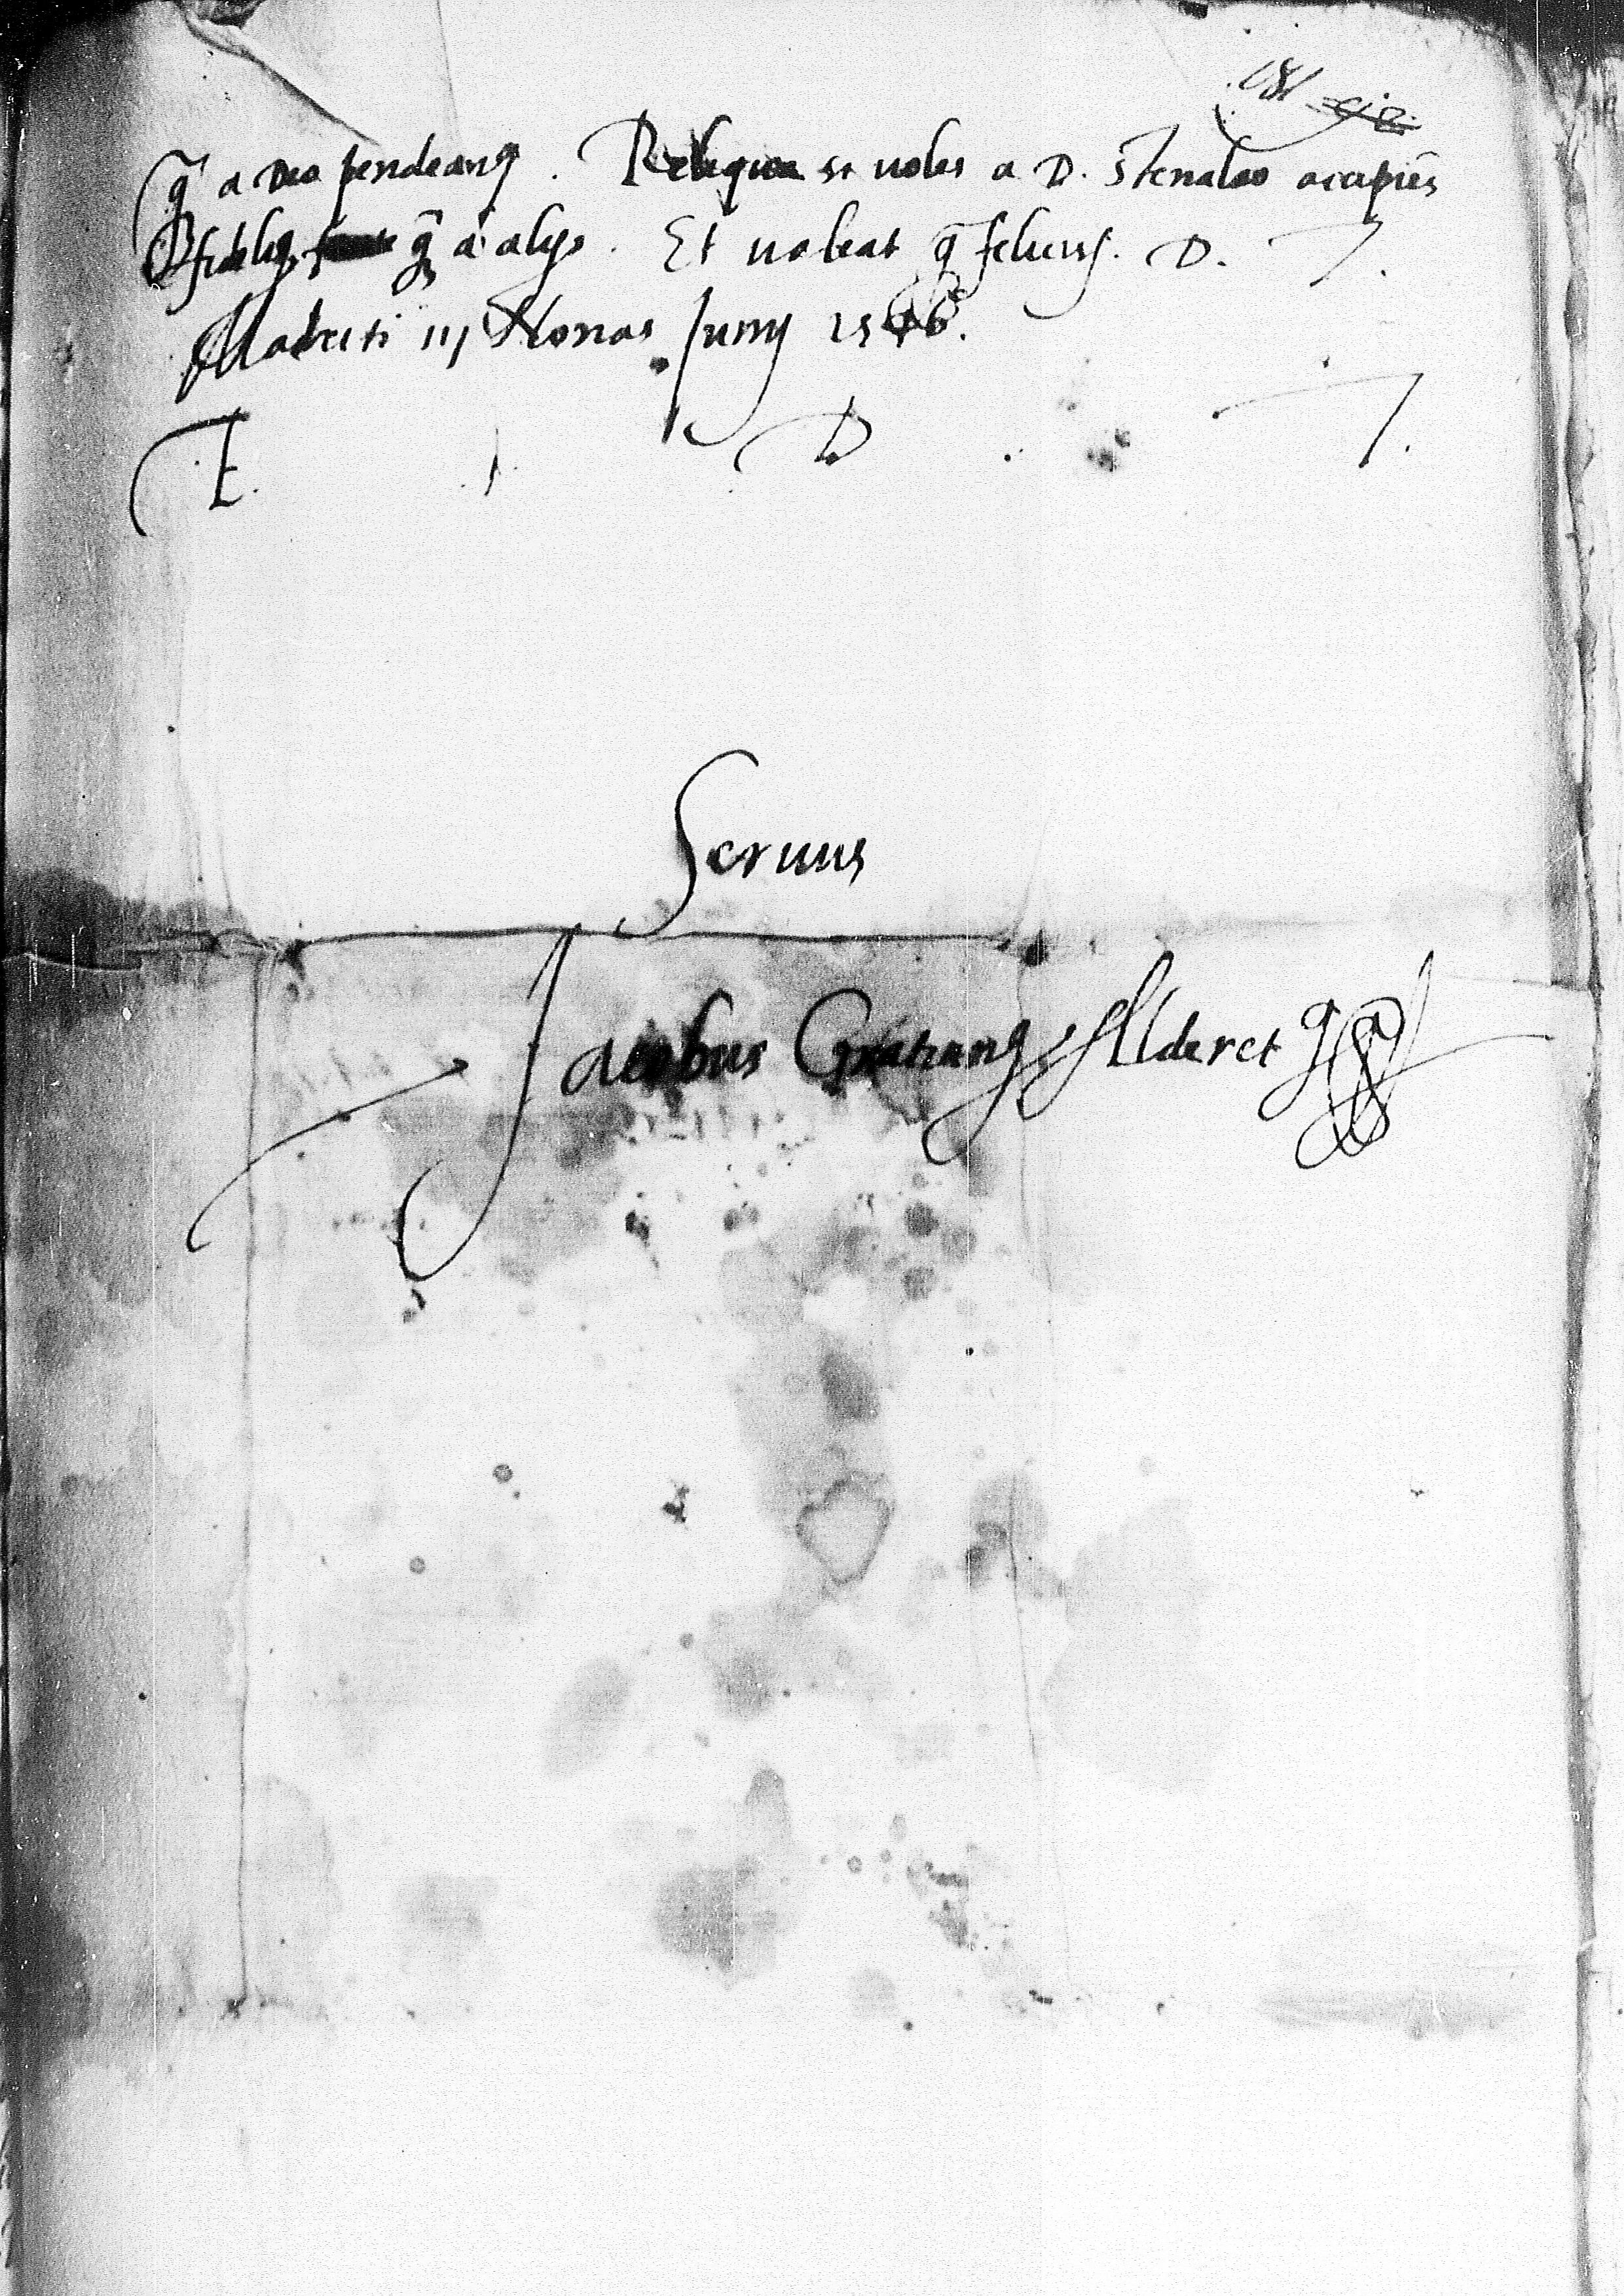 181
q̃ a Deo pendeant. Reliqua si uoles a D. Stenalao accipies
fidelius q̃ ab alijs. Et ualeat q̃ feliciss. D. T.
Madriti iij Nonas Junij
E. D. T.
Seruus
Jacobus Gratianus Alderet